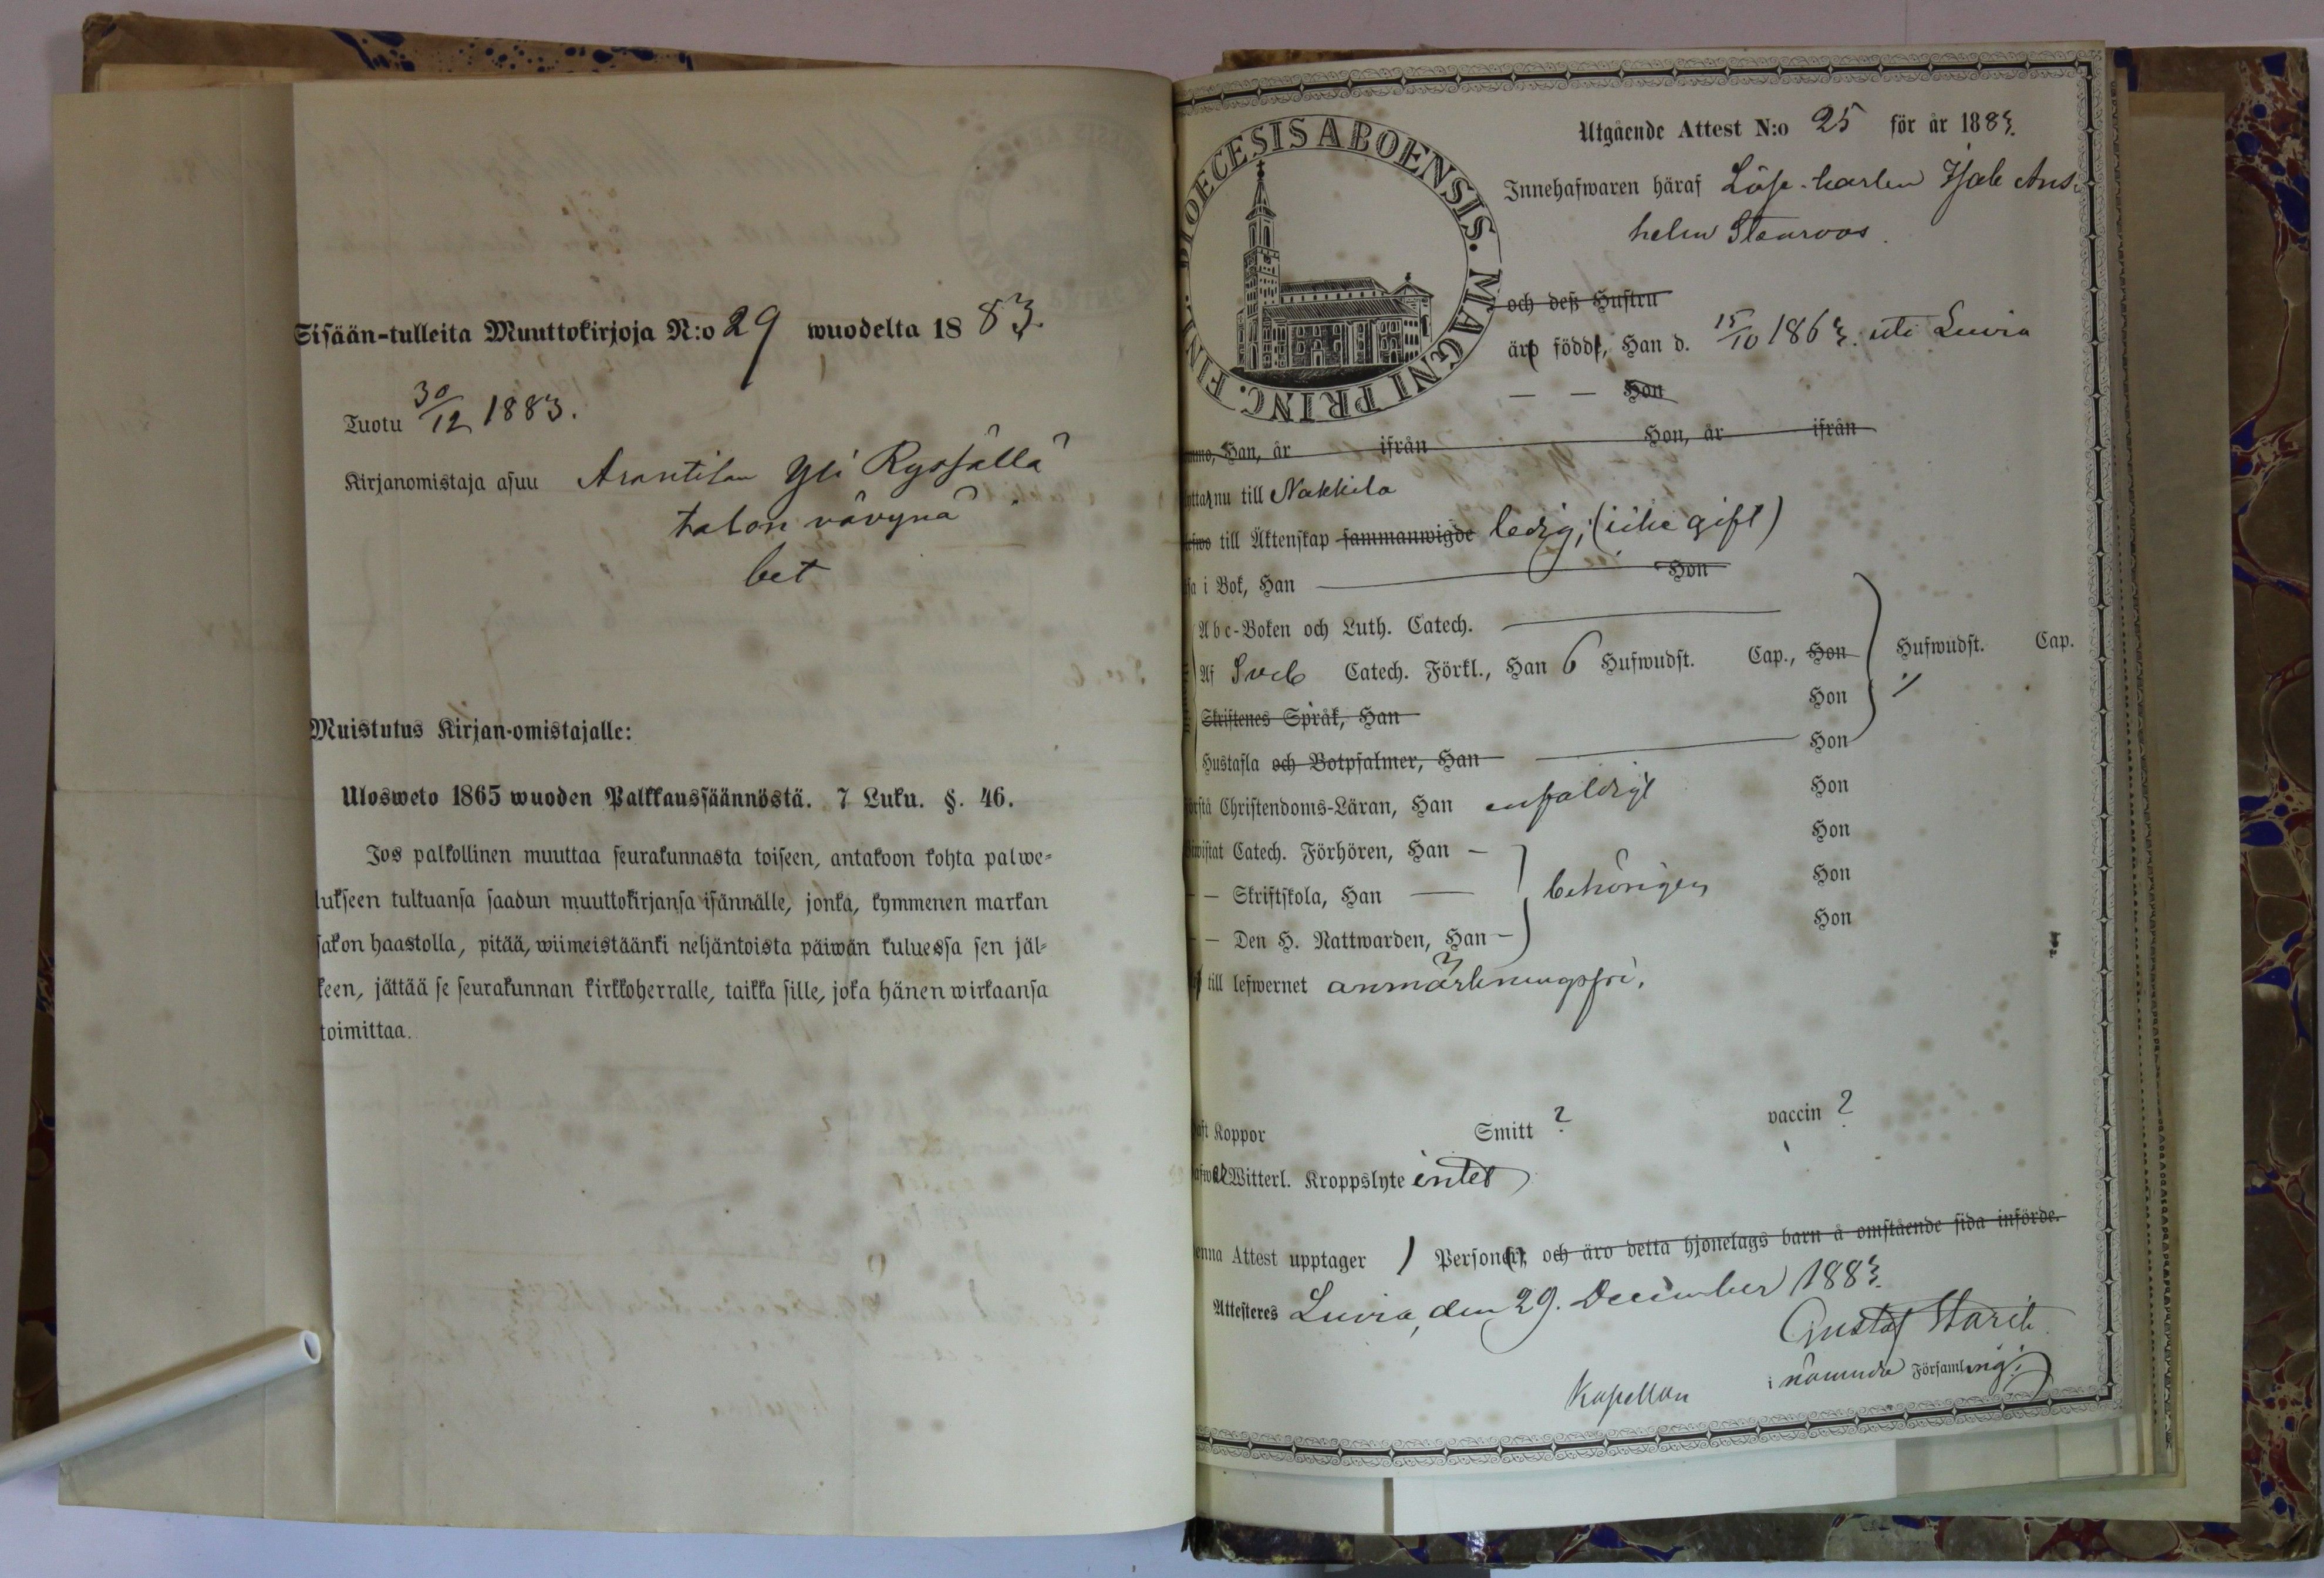 Sisään-tulleita Muuttokirjoja N:o 29 wuodelta 1883.
Tuotu 30/12 1883.
Kirjanomistaja asuu Arantilan Yli Ryssällä
talon vävynä
bet
Muistutus Kirjan-omistajalle:
Ulosweto 1865 wuoden Palkkaussäännöstä. 7 Luku. §. 46.
Jos palkollinen muuttaa seurakunnasta toiseen, antakoon kohta palwe-
lukseen tultuansa saadun muuttokirjansa isännälle, jonka, kymmenen markan
sakon haastolla, pitää, wiimeistäänki neljäntoista päiwän kuluessa sen jäl-
keen, jättää se seurakunnan kirkkoherralle, taikka sille, joka hänen wirkaansa
toimittaa.
DIOECESIS ABOENSIS. MAGNI PRINC. FINL.
Utgående Attest N:o 25 för år 1883.
Innehafwaren häraf Löse-karlen Isak Ans-
helm Stenroos.
och deß Hustru
äro födde, Han d. 15/10 1863. uti Luvia
— — Hon
Han, år ifrån Hon, år ifrån
nu till Nakkila
till Äktenskap sammanwigde ledig, (icke gift)
i Bok, Han Hon
Abc-Boken och Luth. Catech.
Af Sveb Catech. Förkl., Han 6 Hufwudst. Cap., Hon Hufwudst. Cap.
Skriftenes Språk, Han Hon
Hustafla och Botpsalmer, Han Hon
Christendoms-Läran, Han enfaldigt Hon
Catech. Förhören, Han — Hon
— Skriftskola, Han — behörigen Hon
— Den H. Nattwarden, Han — Hon
till lefwernet anmärkningsfri.
Koppor Smitt ? vaccin ?
Witterl. Kroppslyte intet
Attest upptager 1 Person(er), och äro detta hjonelags barn å omstående sida införde.
Attesteres Luvia, den 29. December 1883.
Gustaf
Kapellan i nämnda Församling.